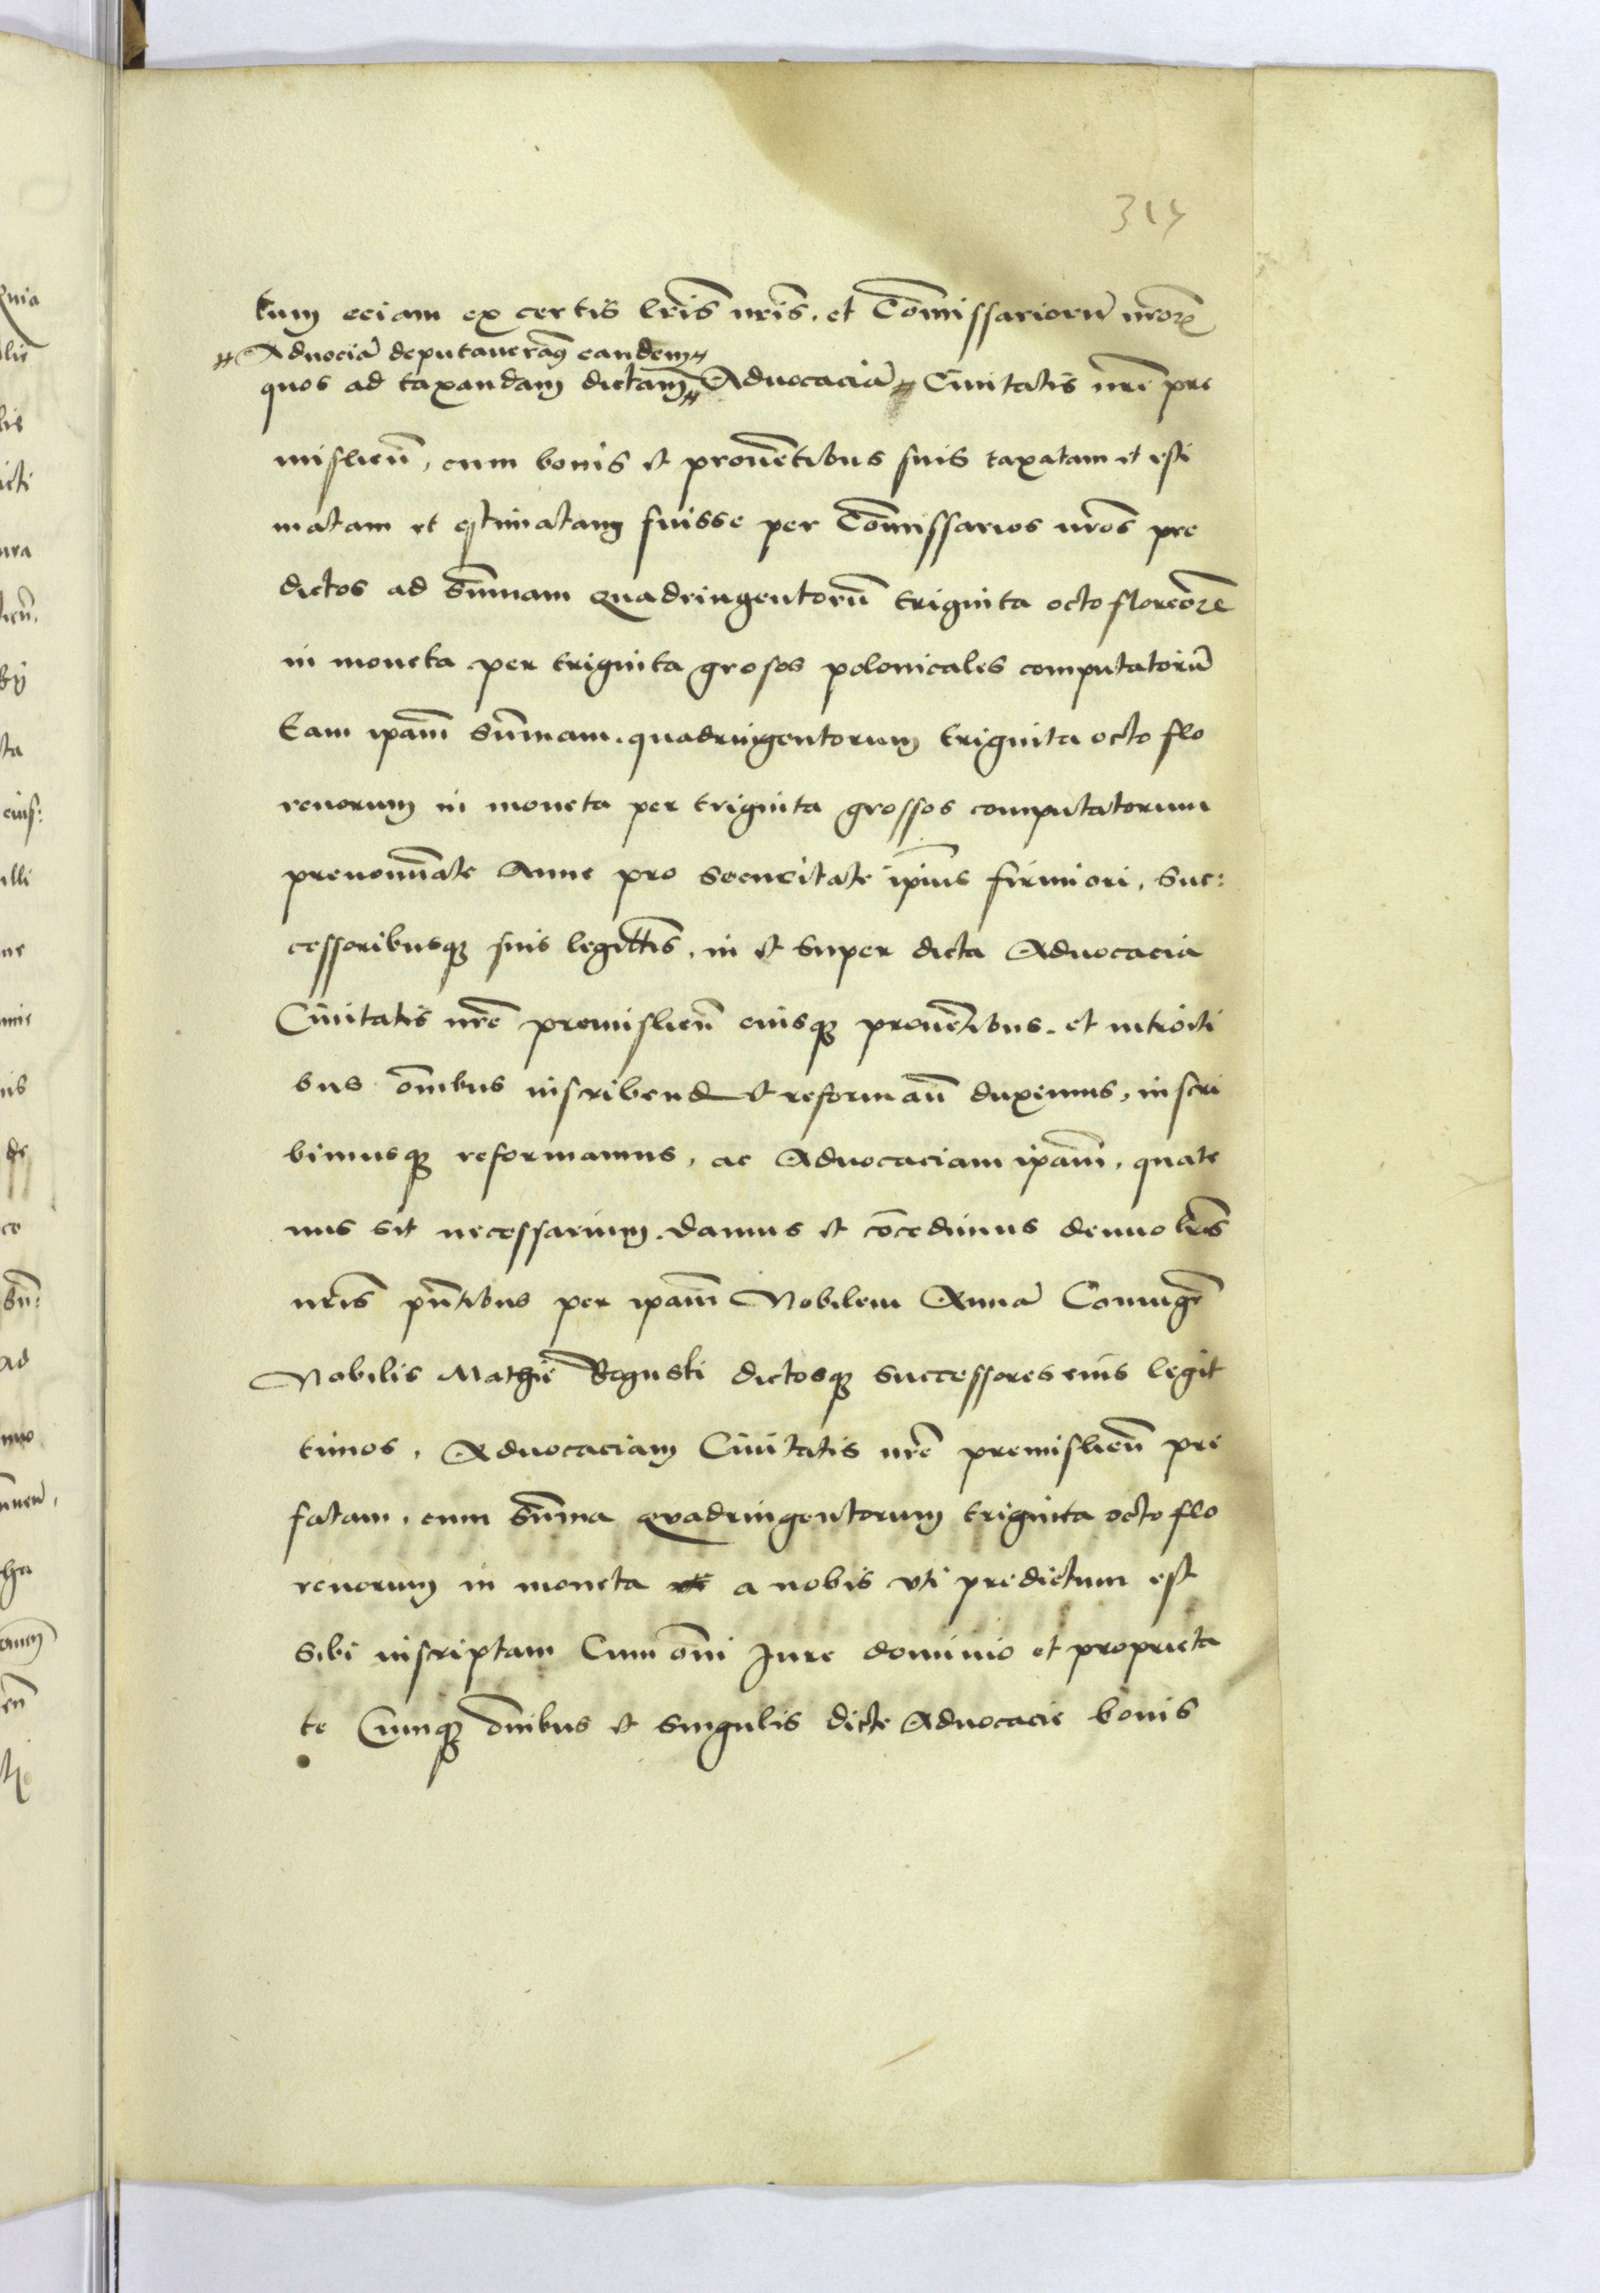 317
tum eciam ex certis lr̃is nr̃is. et Com̃issarioru̅ nr̃oꝝ
⌗ Aduociã deputaueraꝰ eandem ⌗
quos ad taxandam dictam ⌗ Aduocaciã ⌗ Ciuitatis nr̃e pre
mislieñ, cum bonis et prouẽtibus suis taxatam et esti
matam et estimatam fuisse per Com̃issarios nr̃os pre
dictos ad Sum̃am Quadringentorũ triginta octo floreorꝝ
in moneta per triginta grosos polonicales computatorũ
Eam ip̃am Sum̃am. quadringentorum triginta octo flo
renorum in moneta per triginta grossos computatorum
prenomĩate Anne pro Securitate ip̃ius firmiori. Suc:
cessoribusqꝫ suis legitt̃is. in et Super dicta Aduocacia
Ciuitatis nr̃e premislieñ eiusqꝫ prouẽtibus. et introiti
bus om̃ibus inscribend et reformañ duximus, inscri
bimusqꝫ reformamus, ac Aduocaciam ip̃am, quate
nus sit necessarium. damus et cõcedimus denuo lr̃is
nr̃is pñtibus per ip̃am Nobilem Annã Coniugẽ
Nobilis Mathie Rogusti dictosqꝫ successores eius legit
timos. Aduocaciam Ciuitatis nr̃e premislieñ pre
fatam. cum Sum̃a quadringentorum triginta octo flo
renorum in moneta a nobis vti predictum est
Sibi inscriptam Cum om̃i Jure dominio et proprieta
te Cumqꝫ om̃ibus et Singulis dicte Aduocacie bonis